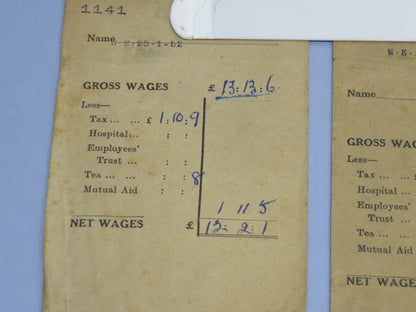 1141
Name
GROSS WAGES £ 13:13:6
Less—
Tax ... ... £ 1:10:9
Hospital... : :
Employees'
Trust ... : :
Tea ... ... : : 8
Mutual Aid : :
1 11 5
NET WAGES £ 12:2:1
W.E.
Name
GROSS WA
Less—
Tax ... ...
Hospital ...
Employees'
Trust ...
Tea ... ...
Mutual Aid
NET WAGES